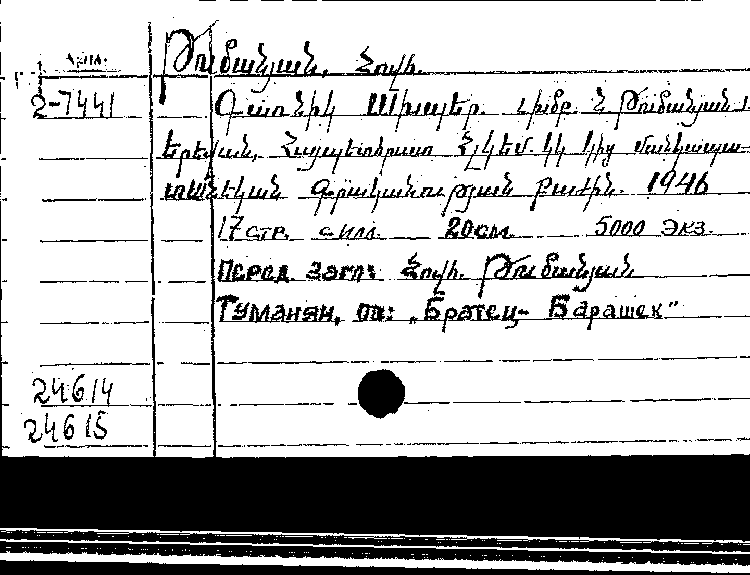 Թումանյան, Հովհ.
2-7441
Գառնիկ Ախպեր. Նկար. Հ. Թումանյան
Երևան, Հայպետհրատ ՀԼԿԵՄ ԿԿ կից մանկապա
տանեկան գրականության բաժին. 1946
17 стр. с илл. 20 см. 5000 экз.
Перед загл: Հովհ. Թումանյան
Туманян, Ов: „Братец- Барашек"
24614
24615